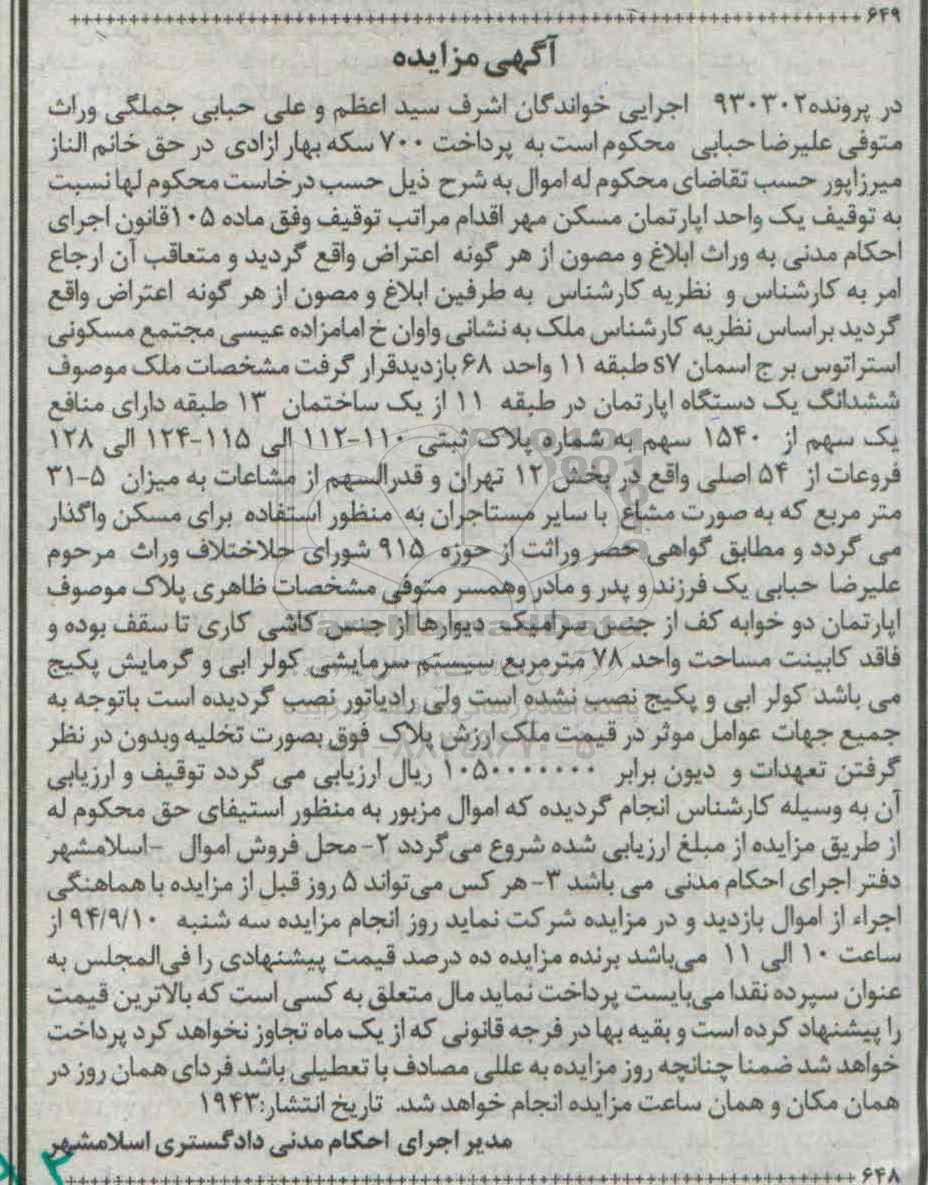 ۶۴۹
آگهی مزایده
در پرونده۹۳۰۳۰۲ اجرایی خواندگان اشرف سید اعظم و علی حبابی جملگی وراث
متوفی علیرضا حبابی محکوم است به پرداخت ۷۰۰ سکه بهار ازادی در حق خانم الناز
میرزاپور حسب تقاضای محکوم له اموال به شرح ذیل حسب درخاست محکوم لها نسبت
به توقیف یک واحد اپارتمان مسکن مهر اقدام مراتب توقیف وفق ماده ۱۰۵قانون اجرای
احکام مدنی به وراث ابلاغ و مصون از هر گونه اعتراض واقع گردید و متعاقب آن ارجاع
امر به کارشناس و نظریه کارشناس به طرفین ابلاغ و مصون از هر گونه اعتراض واقع
گردید براساس نظریه کارشناس ملک به نشانی واوان خ امامزاده عیسی مجتمع مسکونی
استراتوس بر ج اسمان s۷ طبقه ۱۱ واحد ۶۸ بازدیدقرار گرفت مشخصات ملک موصوف
ششدانگ یک دستگاه اپارتمان در طبقه ۱۱ از یک ساختمان ۱۳ طبقه دارای منافع
یک سهم از ۱۵۴۰ سهم به شماره پلاک ثبتی ۱۱۰-۱۱۲ الی ۱۱۵-۱۲۴ الی ۱۲۸
فروعات از ۵۴ اصلی واقع در بخش ۱۲ تهران و قدرالسهم از مشاعات به میزان ۵-۳۱
متر مربع که به صورت مشاع با سایر مستاجران به منظور استفاده برای مسکن واگذار
می گردد و مطابق گواهی حصر وراثت از حوزه ۹۱۵ شورای حلاختلاف وراث مرحوم
علیرضا حبابی یک فرزند و پدر و مادر وهمسر متوفی مشخصات ظاهری پلاک موصوف
اپارتمان دو خوابه کف از جنس سرامیک دیوارها از جنس کاشی کاری تا سقف بوده و
فاقد کابینت مساحت واحد ۷۸ مترمربع سیستم سرمایشی کولر ابی و گرمایش پکیج
می باشد کولر ابی و پکیج نصب نشده است ولی رادیاتور نصب گردیده است باتوجه به
جمیع جهات عوامل موثر در قیمت ملک ارزش پلاک فوق بصورت تخلیه وبدون در نظر
گرفتن تعهدات و دیون برابر ۱۰۵۰۰۰۰۰۰۰ ریال ارزیابی می گردد توقیف و ارزیابی
آن به وسیله کارشناس انجام گردیده که اموال مزبور به منظور استیفای حق محکوم له
از طریق مزایده از مبلغ ارزیابی شده شروع می‌گردد ۲- محل فروش اموال -اسلامشهر
دفتر اجرای احکام مدنی می باشد ۳- هر کس می‌تواند ۵ روز قبل از مزایده با هماهنگی
اجراء از اموال بازدید و در مزایده شرکت نماید روز انجام مزایده سه شنبه ۹۴/۹/۱۰ از
ساعت ۱۰ الی ۱۱ می‌باشد برنده مزایده ده درصد قیمت پیشنهادی را فی‌المجلس به
عنوان سپرده نقدا می‌بایست پرداخت نماید مال متعلق به کسی است که بالاترین قیمت
را پیشنهاد کرده است و بقیه بها در فرجه قانونی که از یک ماه تجاوز نخواهد کرد پرداخت
خواهد شد ضمنا چنانچه روز مزایده به عللی مصادف با تعطیلی باشد فردای همان روز در
همان مکان و همان ساعت مزایده انجام خواهد شد. تاریخ انتشار:۱۹۴۳
مدیر اجرای احکام مدنی دادگستری اسلامشهر
۶۴۸